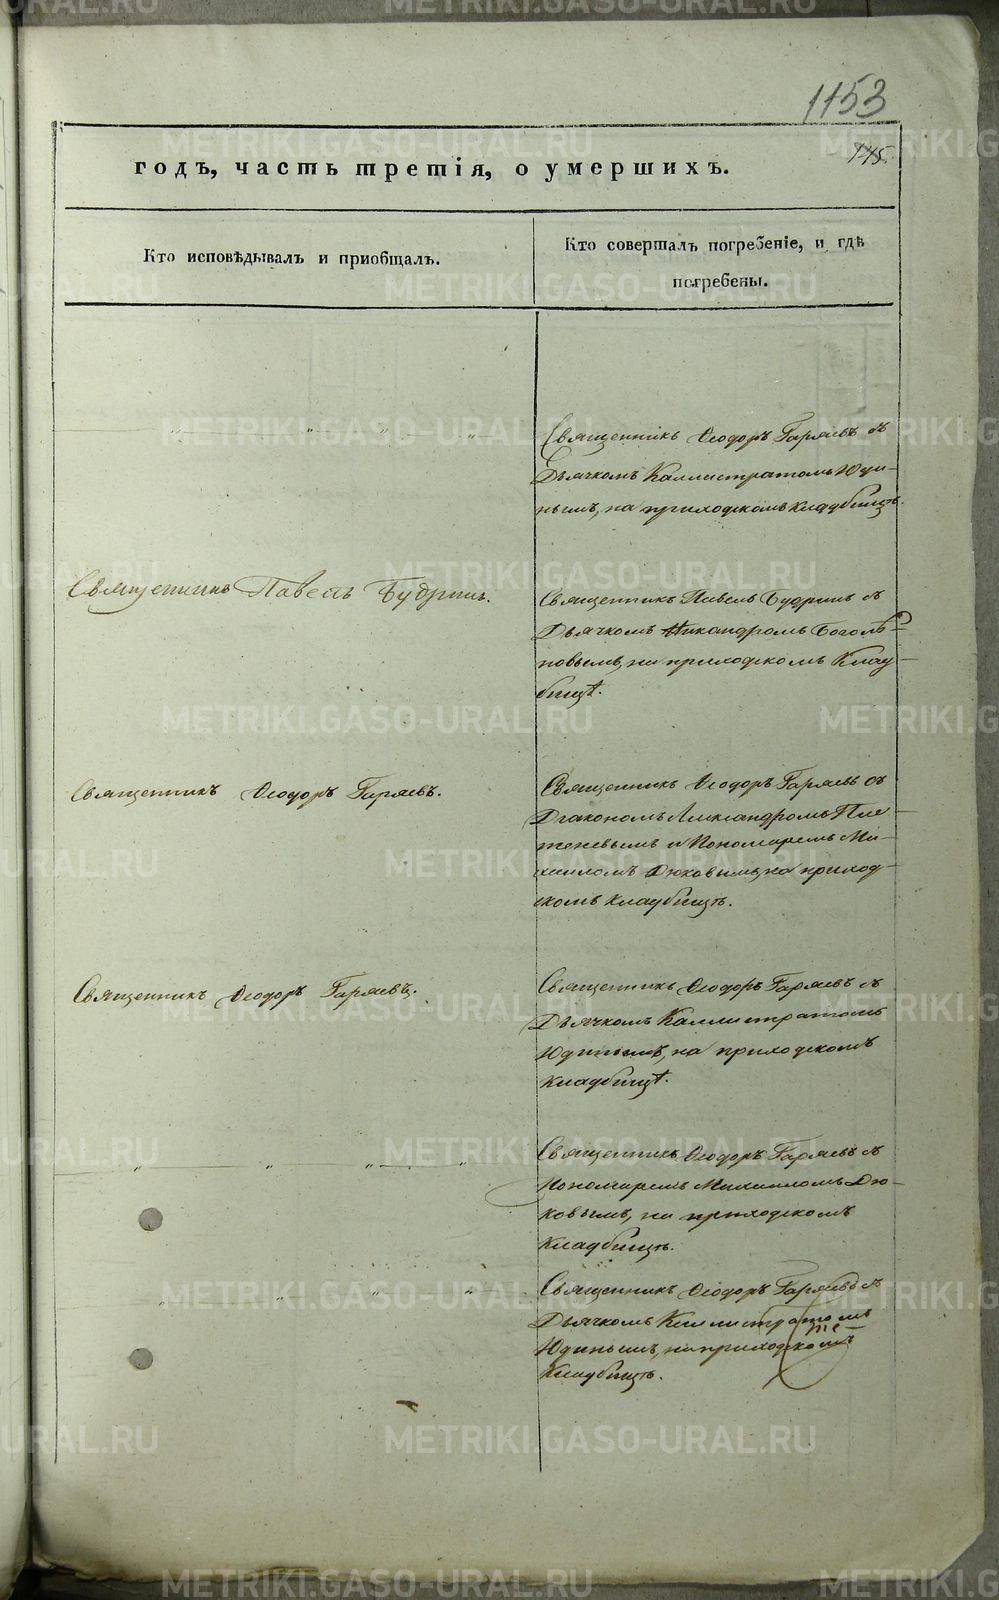 1153
145.
годъ, часть третія, о умершихъ.
Кто исповѣдывалъ и приобщалъ.
Кто совершалъ погребеніе, и гдѣ
погребены.
Священникъ Ѳеодоръ Гаряевъ съ
Дьячкомъ Каллистратомъ Юди-
нымъ, на приходскомъ кладбищѣ.
Священникъ Павелъ Будринъ.
Священникъ Павелъ Будринъ съ
Дьячкомъ Никандромъ Боголѣ-
повымъ, на приходскомъ Клад-
бищѣ.
Священникъ Ѳеодоръ Гаряевъ.
Священникъ Ѳеодоръ Гаряевъ съ
Діакономъ Александромъ Пле-
теневымъ и Пономаремъ Ми-
хаиломъ Дюковымъ, на приход-
скомъ кладбищѣ.
Священникъ Ѳеодоръ Гаряевъ.
Священникъ Ѳеодоръ Гаряевъ съ
Дьячкомъ Каллистратомъ
Юдинымъ, на приходскомъ
Кладбищѣ.
Священникъ Ѳеодоръ Гаряевъ съ
Пономаремъ Михаиломъ Дю-
ковымъ, на приходскомъ
Кладбищѣ.
Священникъ Ѳеодоръ Гаряевъ съ
Дьячкомъ Каллистратомъ
Юдинымъ, на приходскомъ
Кладбищѣ.
METRIKI.GASO-URAL.RU